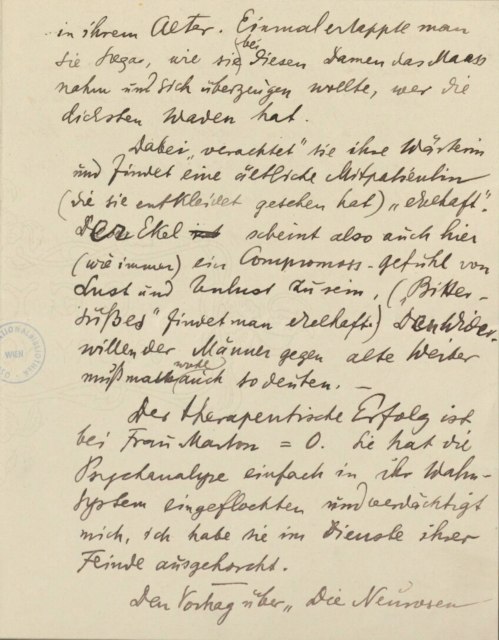 in ihrem Alter. Einmal ertappte man
sie sogar, wie sie bei diesen Damen das Maass
nahm und sich überzeugen wollte, wer die
dicksten Waden hat.
Dabei „verachtet" sie ihre Wärterin
und findet eine ältliche Mitpatientin
(die sie entkleidet gesehen hat) „ekelhaft".
Der Ekel ist scheint also auch hier
(wie immer) ein Compromiss-gefühl von
Lust und Unlust zu sein, („Bitter-
süßes" findet man ekelhaft.) Den Wider-
willen der Männer gegen alte Weiber
muß man wohl auch so deuten. —
Der therapeutische Erfolg ist
bei Frau Marton = 0. Sie hat die
Psychanalyse einfach in ihr Wahn-
system eingeflochten und verdächtigt
mich, ich habe sie im Dienste ihrer
Feinde ausgehorcht.
Den Vortrag über „Die Neurosen
WIEN